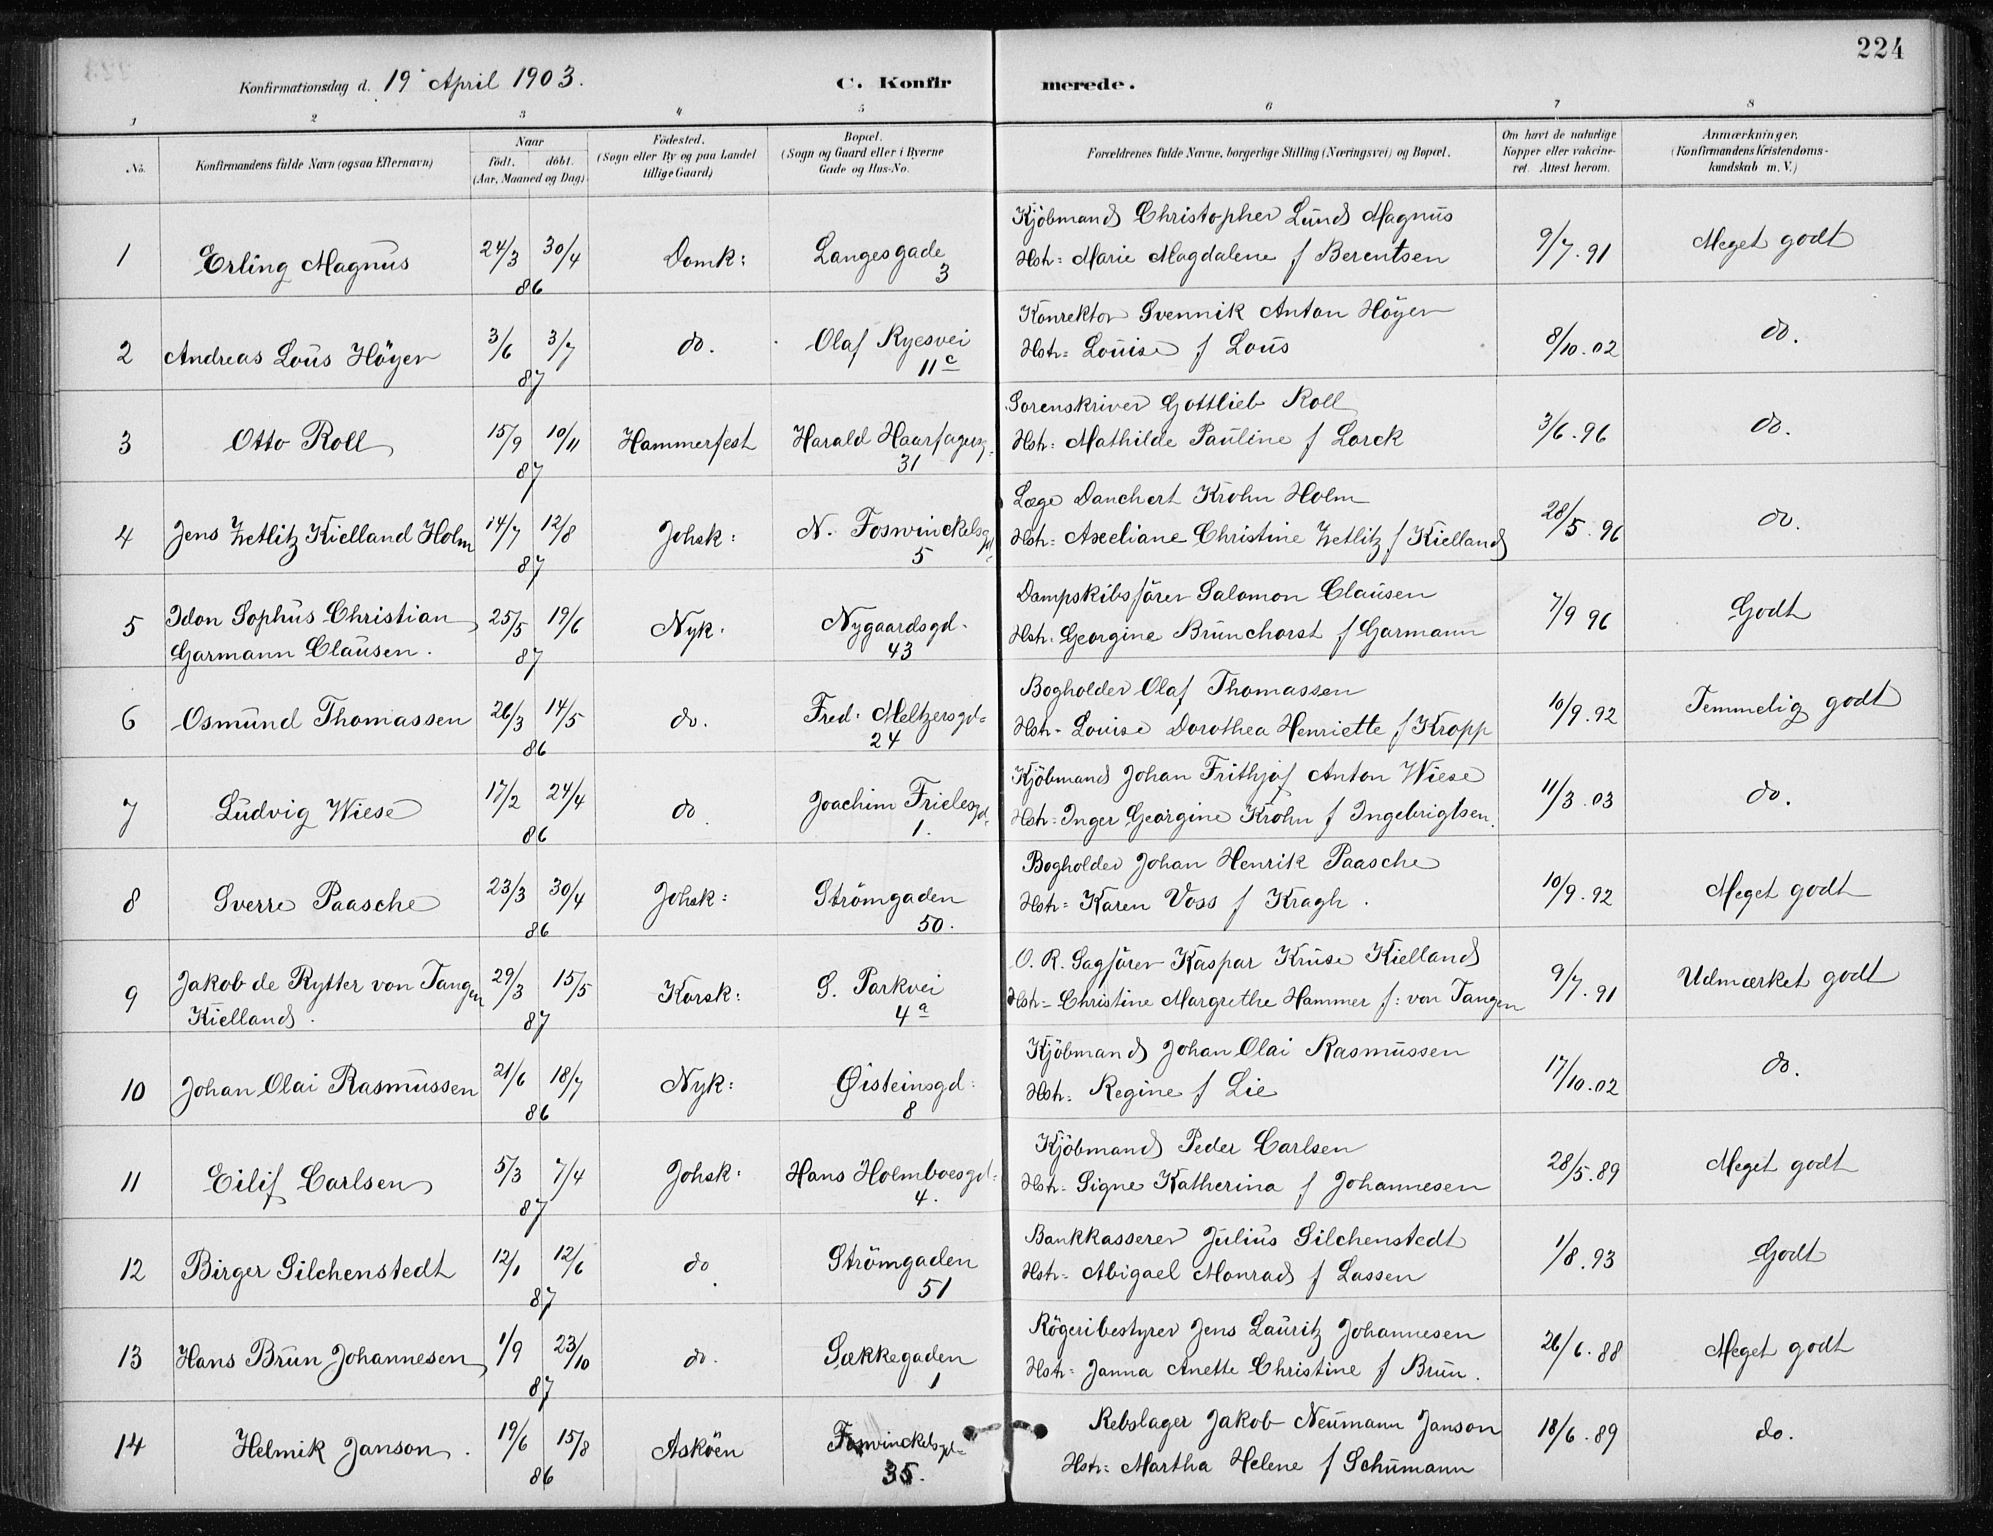 224
Konfirmationsdag d. 19' April 1903.
C. Konfir merede.
1 2 3 4 5 6 7 8
No. Konfirmandens fulde Navn (ogsaa Efternavn) Naar födt. döbt. (Aar, Maaned og Dag) Födested. (Sogn eller By og paa Landet tillige Gaard) Bopæl. (Sogn og Gaard eller i Byerne Gade og Hus-No. Forældrenes fulde Navne, borgerlige Stilling (Næringsvei) og Bopæl. Om havt de naturlige Kopper eller vakcineret. Attest herom. Anmærkninger, (Konfirmandens Kristendomskundskab m. V.)
Kjöbmand Christopher Lund Magnus
1 Erling Magnus 24/3 30/4 Domk: Langesgade Hstr: Marie Magdalene f Berentsen 9/7.91 Meget godt
86 3
Konrektor Svennik Anton Höyer
2 Andreas Lous Höyer 3/6 3/7 do. Olaf Ryesvei Hstr: Louise f Lous 8/10.02 do.
87 11c
Sorenskriver Gottlieb Roll
3 Otto Roll 15/9 10/11 Hammerfest Harald Haarfagersg. Hstr: Mathilde Pauline f Lorck 3/6.96 do.
87 31
Læge Danchert Krohn Holm
4 Jens Zetlitz Kielland Holm 14/7 12/8 Johsk: N. Foswinckelsgd Hstr: Axeliane Christine Zetlitz f Kielland 28/5.96 do.
87 5
Dampskibsförer Salomon Clausen
5 Idon Sophus Christian 25/5 19/6 Nyk. Nygaardsgd. Hstr: Georgine Brunchorst f Garmann 7/9 96 Godt
Garmann Clausen. 87 43
Bogholder Olaf Thomassen
6 Osmund Thomassen 26/3 14/5 do. Fred: Meltzersgd= Hstr. Louise Dorothea Henriette f Kropp 10/9.92 Temmelig godt
86 24
Kjöbmand Johan Frithjof Anton Wiese
7 Ludvig Wiese 17/2 24/4 do. Joachim Frielesgd. Hstr: Inger Georgine Krohn f Ingebrigtsen. 11/3.03 do.
86 1.
Bogholder Johan Henrik Paasche
8 Sverre Paasche 23/3 30/4 Johsk: Strömgaden Hstr: Karen Voss f Kragh. 10/9.92 Meget godt
86 50.
O. R. Sagförer Kaspar Kruse Kielland
9 Jakob de Rytter von Tangen 29/3 15/5 Korsk: S. Parkvei Hstr= Christine Margrethe Hammer f: von Tangen 9/7.91 Udmærket godt
Kielland. 87 4a
Kjöbmand Johan Olai Rasmussen
10 Johan Olai Rasmussen 21/6 18/7 Nyk: Øisteinsgd: Hstr: Regine f Lie 17/10.02 do.
86 8
Kjöbmand Peder Carlsen
11 Eilif Carlsen 5/3 7/4 Johsk: Hans Holmboesgd: Hstr: Signe Katherina f Johannesen 28/5.89 Meget godt
87 4.
Bankkasserer Julius Silchenstedt
12 Birger Silchenstedt 12/1 12/6 do. Strömgaden Hstr: Abigael Monrad f Lassen 1/8.93 Godt
87 51
Rögeribestyrer Jens Lauritz Johannesen
13 Hans Brun Johannesen 1/9 23/10 do. Sækkegaden Hstr: Janna Anette Christine f Brun. 26/6.88 Meget godt
87 1
Rebslager Jakob Neumann Janson
14 Helmik Janson. 19/6 15/8 Asköen Foswinckelsgd= Hstr: Martha Helene f Schumann 18/6.89 do.
86 35.